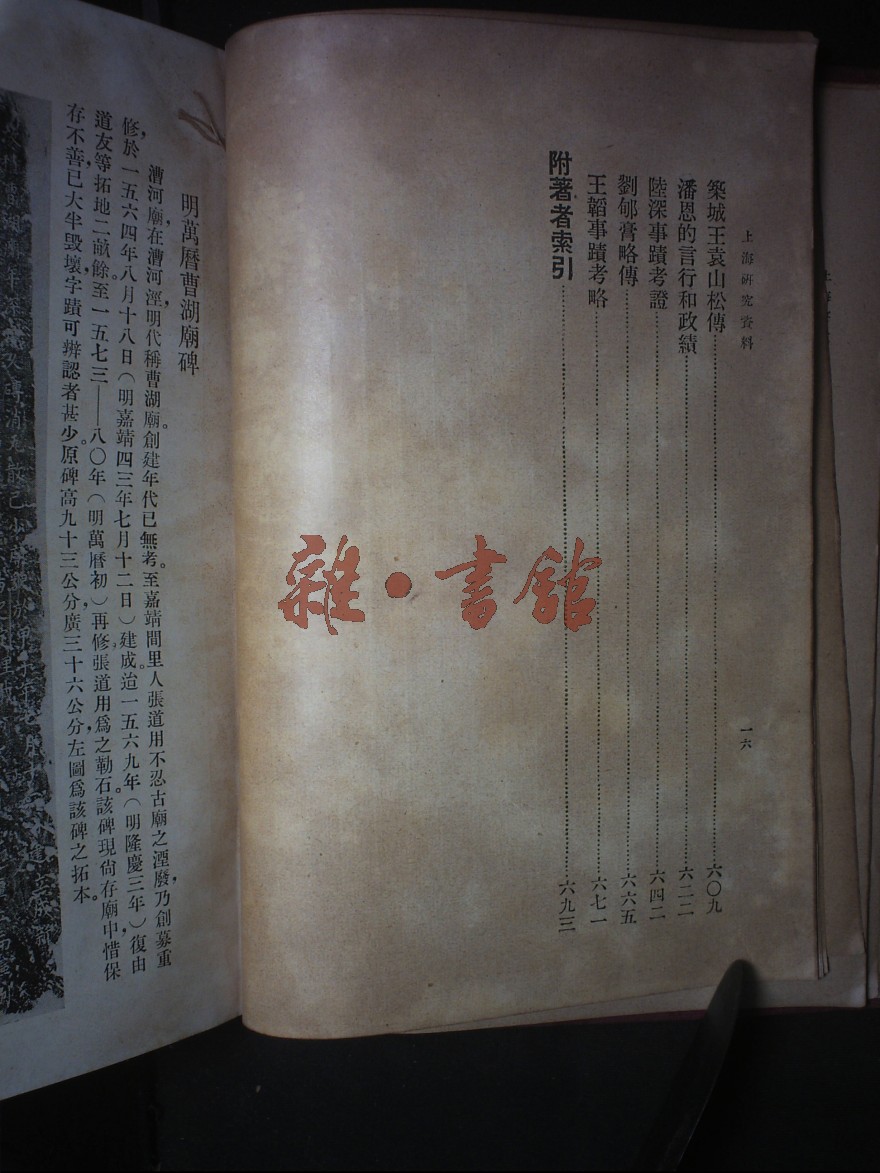 上海研究資料
築城王袁山松傳……六〇九
潘恩的言行和政績……六二二
陸深事蹟考證……六四二
劉郇膏略傳……六六五
王韜事蹟考略……六七一
附著者索引……六九三
一六
雜·書館
明萬曆曹湖廟碑
漕河廟，在漕河涇，明代稱曹湖廟。創建年代已無考。至嘉靖間里人張道用不忍古廟之湮廢，乃創募重
修，於一五六四年八月十八日（明嘉靖四三年七月十二日）建成。迨一五六九年（明隆慶三年），復由
道友等拓地二畝餘。至一五七三——八〇年（明萬曆初）再修，張道用爲之勒石。該碑現尙存廟中，惜保
存不善，已大半毀壞，字蹟可辨認者甚少。原碑高九十三公分，廣三十六公分，左圖爲該碑之拓本。